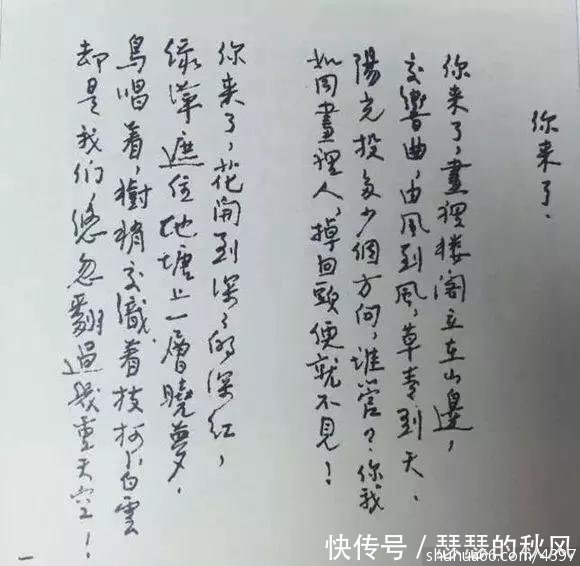 你来了.
你来了,畫裡楼阁立在山邊,
交響曲,由風到風,草青到天、
陽光投多少個方向,谁管?你,我
如同畫裡人,掉回頭便就不見!
你来了,花開到深〻的深红,
绿萍遮住池塘上一層曉夢,
鳥唱着,樹梢交織着枝柯,白雲
却是我們悠忽翻過幾重天空!
快传号/瑟瑟的秋风
shuhua66.com/4397